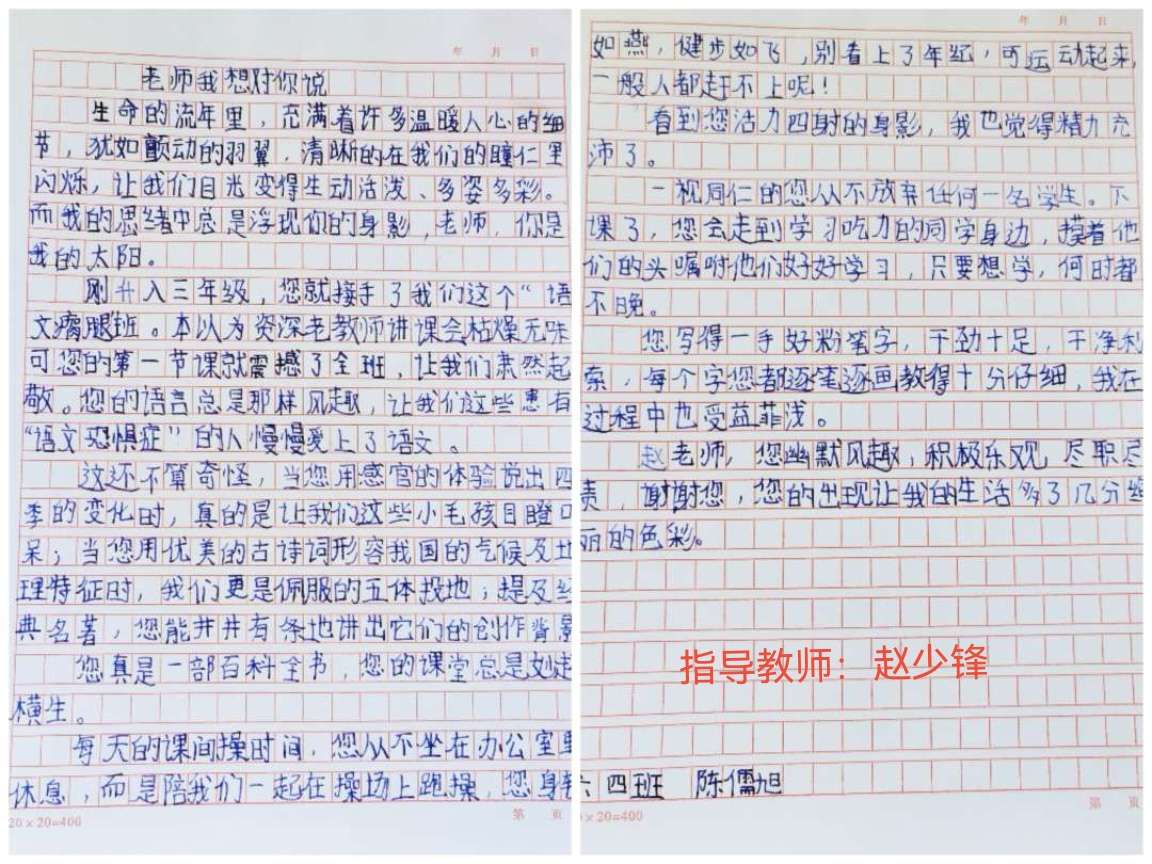 年 月 日
老师我想对你说
生命的流年里，充满着许多温暖人心的细
节，犹如颤动的羽翼，清晰的在我们的瞳仁里
闪烁，让我们目光变得生动活泼、多姿多彩。
而我的思绪中总是浮现你的身影，老师，你是
我的太阳。
刚升入三年级，您就接手了我们这个“语
文瘸腿班。本以为资深老教师讲课会枯燥无味
可您的第一节课就震撼了全班，让我们肃然起
敬。您的语言总是那样风趣，让我们这些患有
“语文恐惧症”的人慢慢爱上了语文。
这还不算奇怪，当您用感官的体验说出四
季的变化时，真的是让我们这些小毛孩目瞪口
呆；当您用优美的古诗词形容我国的气候及地
理特征时，我们更是佩服的五体投地；提及经
典名著，您能井井有条地讲出它们的创作背景
您真是一部百科全书，您的课堂总是妙趣
横生。
每天的课间操时间，您从不坐在办公室里
休息，而是陪我们一起在操场上跑操，您身轻
20×20=400 第 页
年 月 日
如燕，健步如飞，别看上了年纪，可运动起来，
一般人都赶不上呢！
看到您活力四射的身影，我也觉得精力充
沛了。
一视同仁的您从不放弃任何一名学生。下
课了，您会走到学习吃力的同学身边，摸着他
们的头嘱咐他们好好学习，只要想学，何时都
不晚。
您写得一手好粉笔字，干劲十足，干净利
索，每个字您都逐笔逐画教得十分仔细，我在
过程中也受益菲浅。
赵老师，您幽默风趣，积极乐观，尽职尽
责，谢谢您，您的出现让我的生活多了几分绚
丽的色彩。
指导教师：赵少锋
六四班 陈儒旭
×20=400 第 页